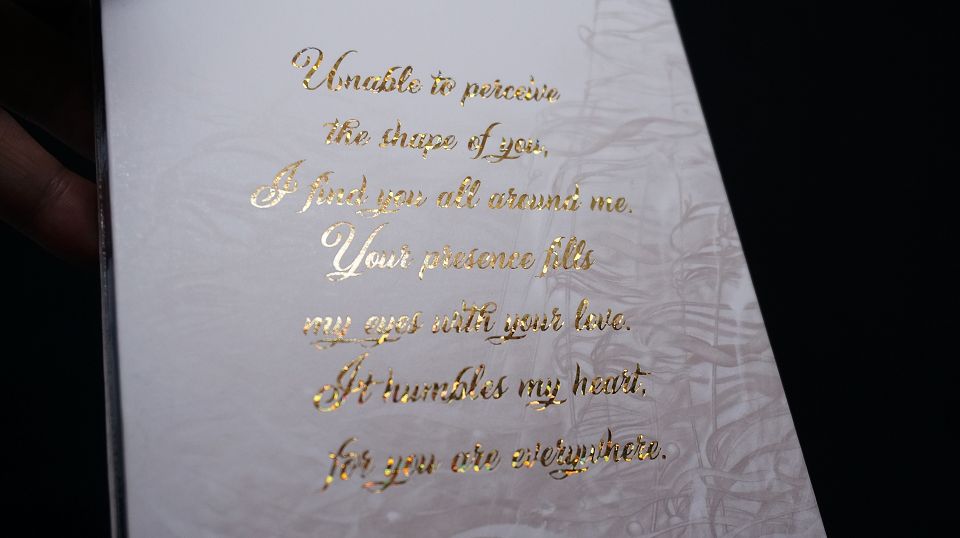 Unable to perceive
the shape of you,
I find you all around me.
Your presence fills
my eyes with your love.
It humbles my heart,
for you are everywhere.